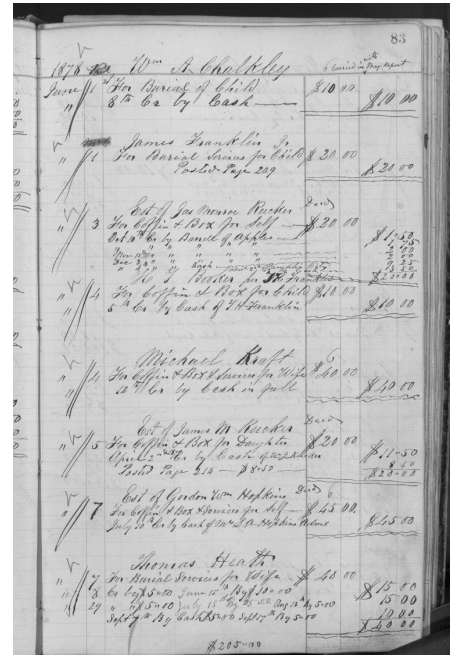 83
1878 Wm A Chalkley Carried in May Report
June 1 For Burial of Child $10 00
8th Cr by Cash $10 00
James Franklin Jr
" 1 For Burial Services for Child $20 00
Posted Page 229 $20 00
Est of Jas Monroe Rucker Decd
" 3 For Coffin & Box for Self $20 00
Oct 10th Cr by Barrel of Apples $1-50
Nov " " " "
Dec " " " Cash
$20 00
H T Booker for T H Franklin
" 4 For Coffin & Box for Child $10 00
5th Cr by Cash of T H Franklin $10 00
Michael Kraft
" 4 For Coffin & Box & Services for Wife $40 00
12th Cr by Cash in full $40 00
Est of James M Rucker Decd
" 5 For Coffin & Box for Daughter $20 00
April 2nd Cr by Cash of $11-50
Posted Page 214 - $8-50 8 50
$20-00
Est of Gordon Wm Hopkins Decd
" 7 For Coffin & Box & Services for Self $45 00
July 10th Cr by Cash of Hopkins $45 00
Thomas Heath
" 7 For Burial Services for Wife $40 00
" 8 Cr by $5-00 June 15th By $10-00 $15 00
" 29 " " $5-00 July 15th By $5-00 Aug 12th By 5-00 15 00
Sept 7th By Cash $5-00 Sept 17th By 5-00 10 00
$40 00
$205-00